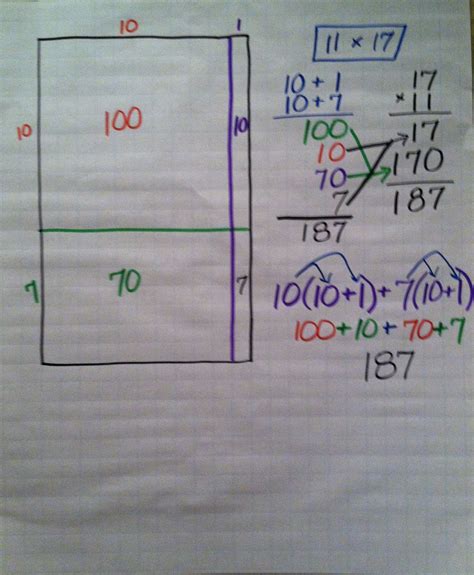 10 1
10 100 10
7 70 7
11 × 17
10 + 1
10 + 7
100
10
70
7
187
17
× 11
17
170
187
10(10+1)+7(10+1)
100+10+70+7
187